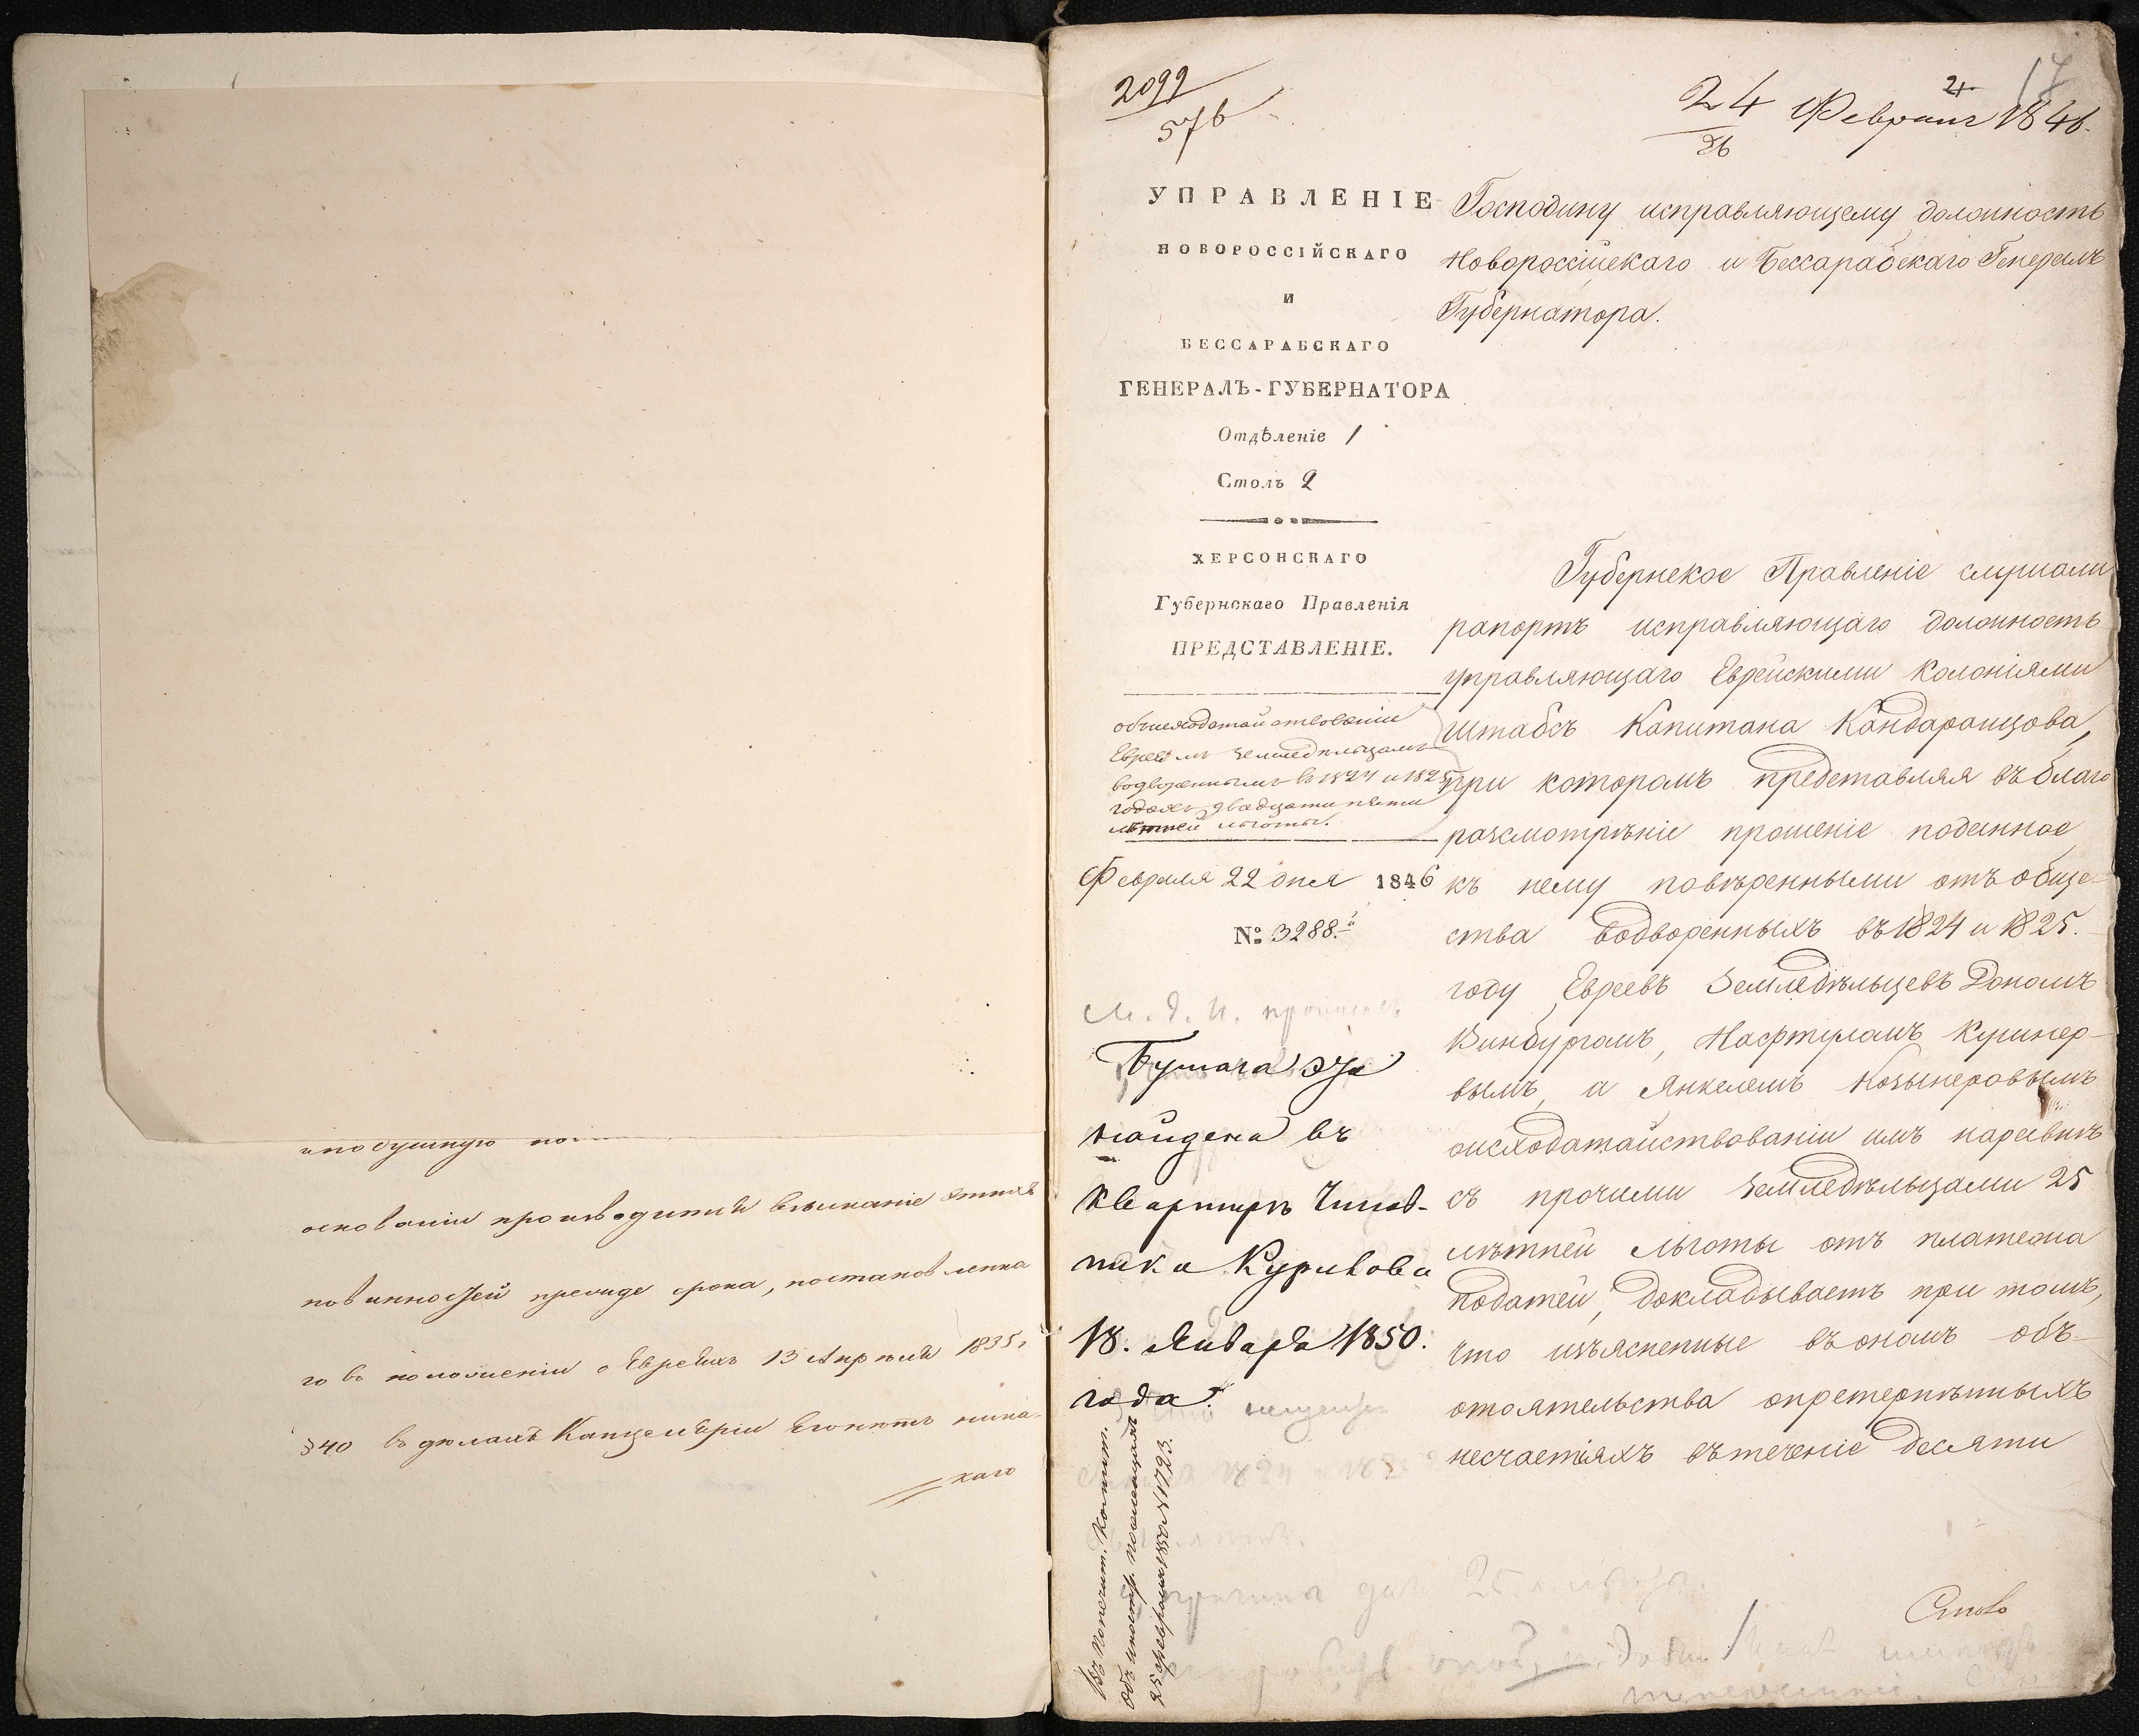 основаніи производится взысканіе этихъ
повинностей прежде срока, постановленна
го въ положеніи о Евреяхъ 13 Апрѣля 1835 г
§ 40 въ дѣлахъ Канцеляріи
каго
2099
576
24 Февраля 1846.
26
17
УПРАВЛЕНІЕ
НОВОРОССІЙСКАГО
И
БЕССАРАБСКАГО
ГЕНЕРАЛЪ-ГУБЕРНАТОРА
Отдѣленіе 1
Столъ 2
ХЕРСОНСКАГО
Губернскаго Правленія
ПРЕДСТАВЛЕНІЕ.
объ исходатайствованіи
Евреямъ земледѣльцамъ
водвореннымъ въ 1824 и 1825
годахъ двадцати пяти
лѣтней льготы.
Февраля 22 дня 1846
№ 3288.
Бумага эта
найдена въ
квартирѣ Чинов-
ника Курикова
18. Января 1850.
года.
Въ Попечит. Комит.
объ иностр. поселенцахъ
25 февраля 1850 № 1723.
Господину исправляющему должность
Новороссійскаго и Бессарабскаго Генералъ
Губернатора.
Губернское Правленіе слушали
рапортъ исправляющаго должность
управляющаго Еврейскими Колоніями
Штабсъ Капитана Кандаранцова,
при которомъ представляя въ благо
разсмотрѣніе прошеніе поданное
къ нему повѣренными отъ обще-
ства водворенныхъ въ 1824 и 1825.
году Евреевъ Земледѣльцевъ
Винбургомъ, Нафтуломъ Кушнер-
вымъ, и Янкелемъ
оисходатайствованіи имъ наравнѣ
съ прочими Земледѣльцами 25
лѣтней льготы отъ платежа
податей, докладываетъ при томъ,
что изъясненные въ ономъ объ-
стоятельства опретерпѣнныхъ
несчастіяхъ втеченіе десяти